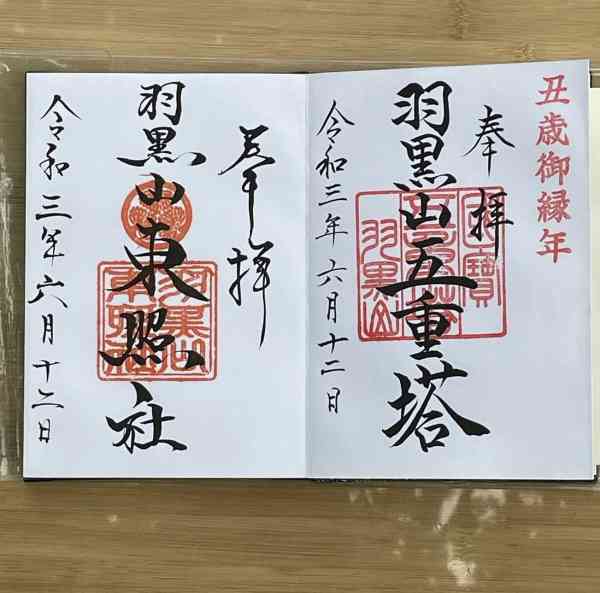 丑歳御縁年
奉拝
羽黒山五重塔
国寳
羽黒山
令和三年六月十二日
奉拝
羽黒山東照社
令和三年六月十二日